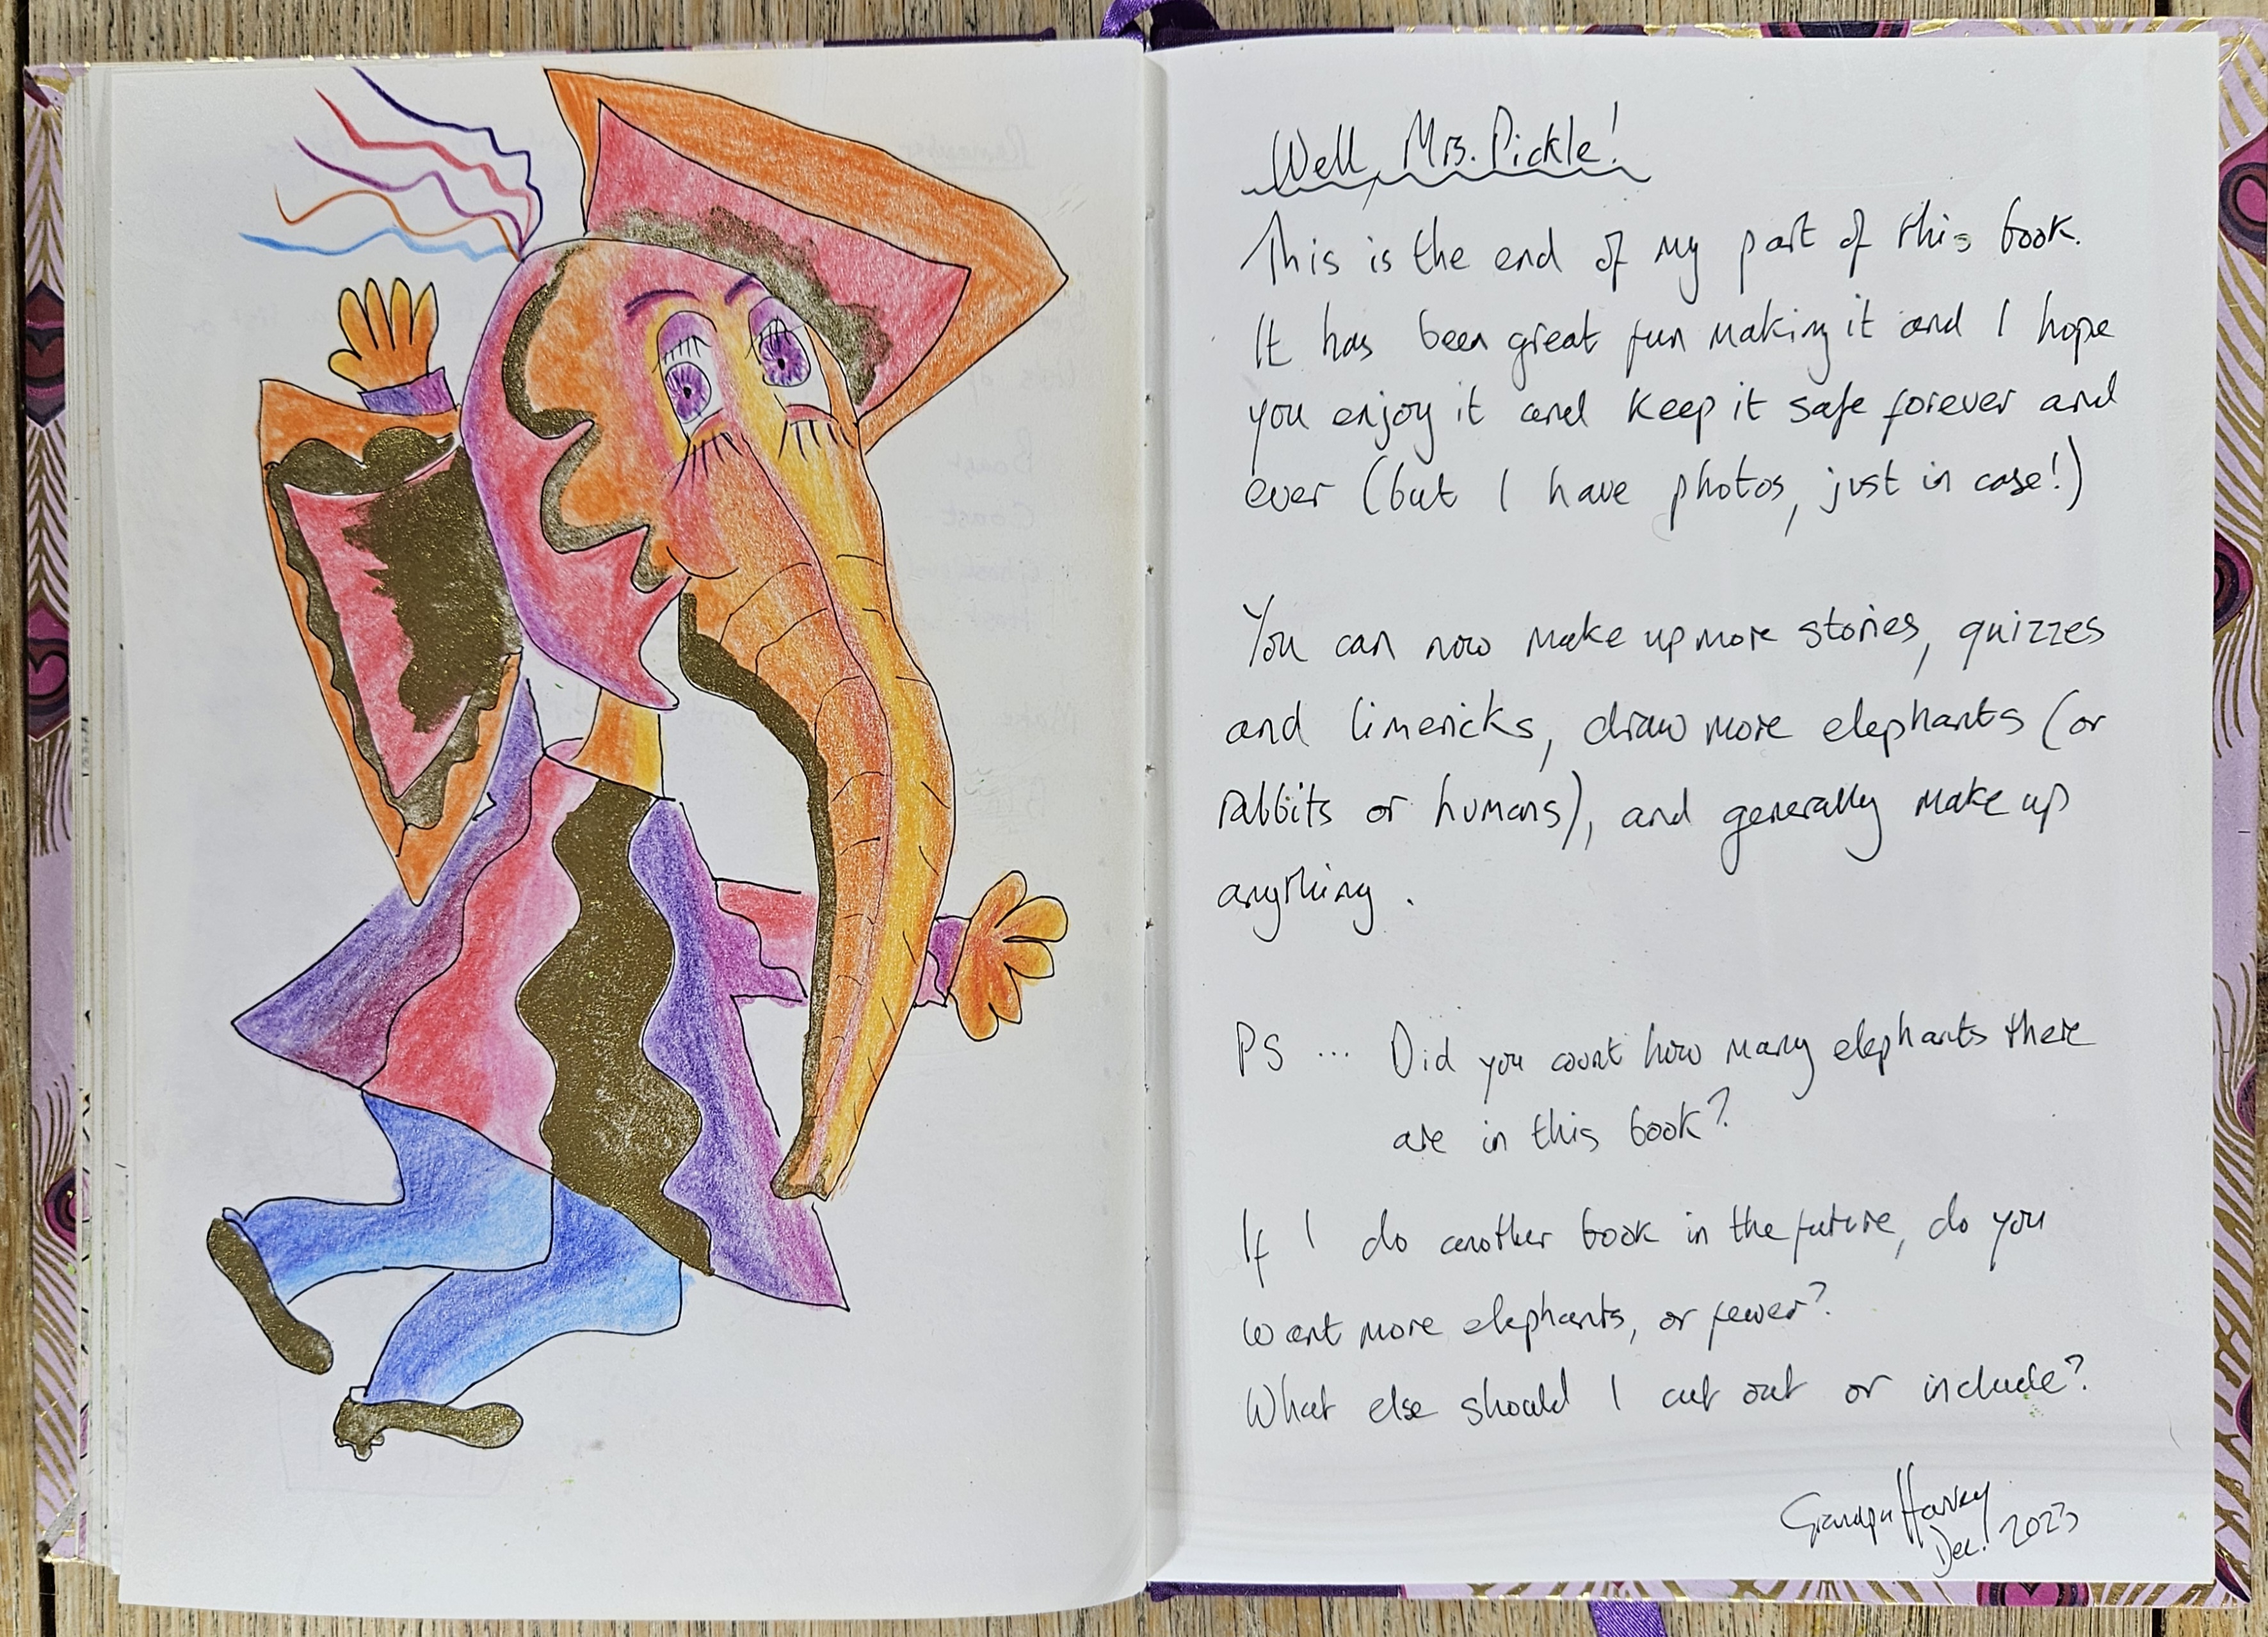 Well, Mrs. Pickle!
This is the end of my part of this book.
It has been great fun making it and I hope
you enjoy it and keep it safe forever and
ever (but I have photos, just in case!)
You can now make up more stories, quizzes
and limericks, draw more elephants (or
rabbits or humans), and generally make up
anything.
PS ... Did you count how many elephants there
are in this book?
If I do another book in the future, do you
want more elephants, or fewer?
What else should I cut out or include?
Grandpa Harvey
Dec. 2023